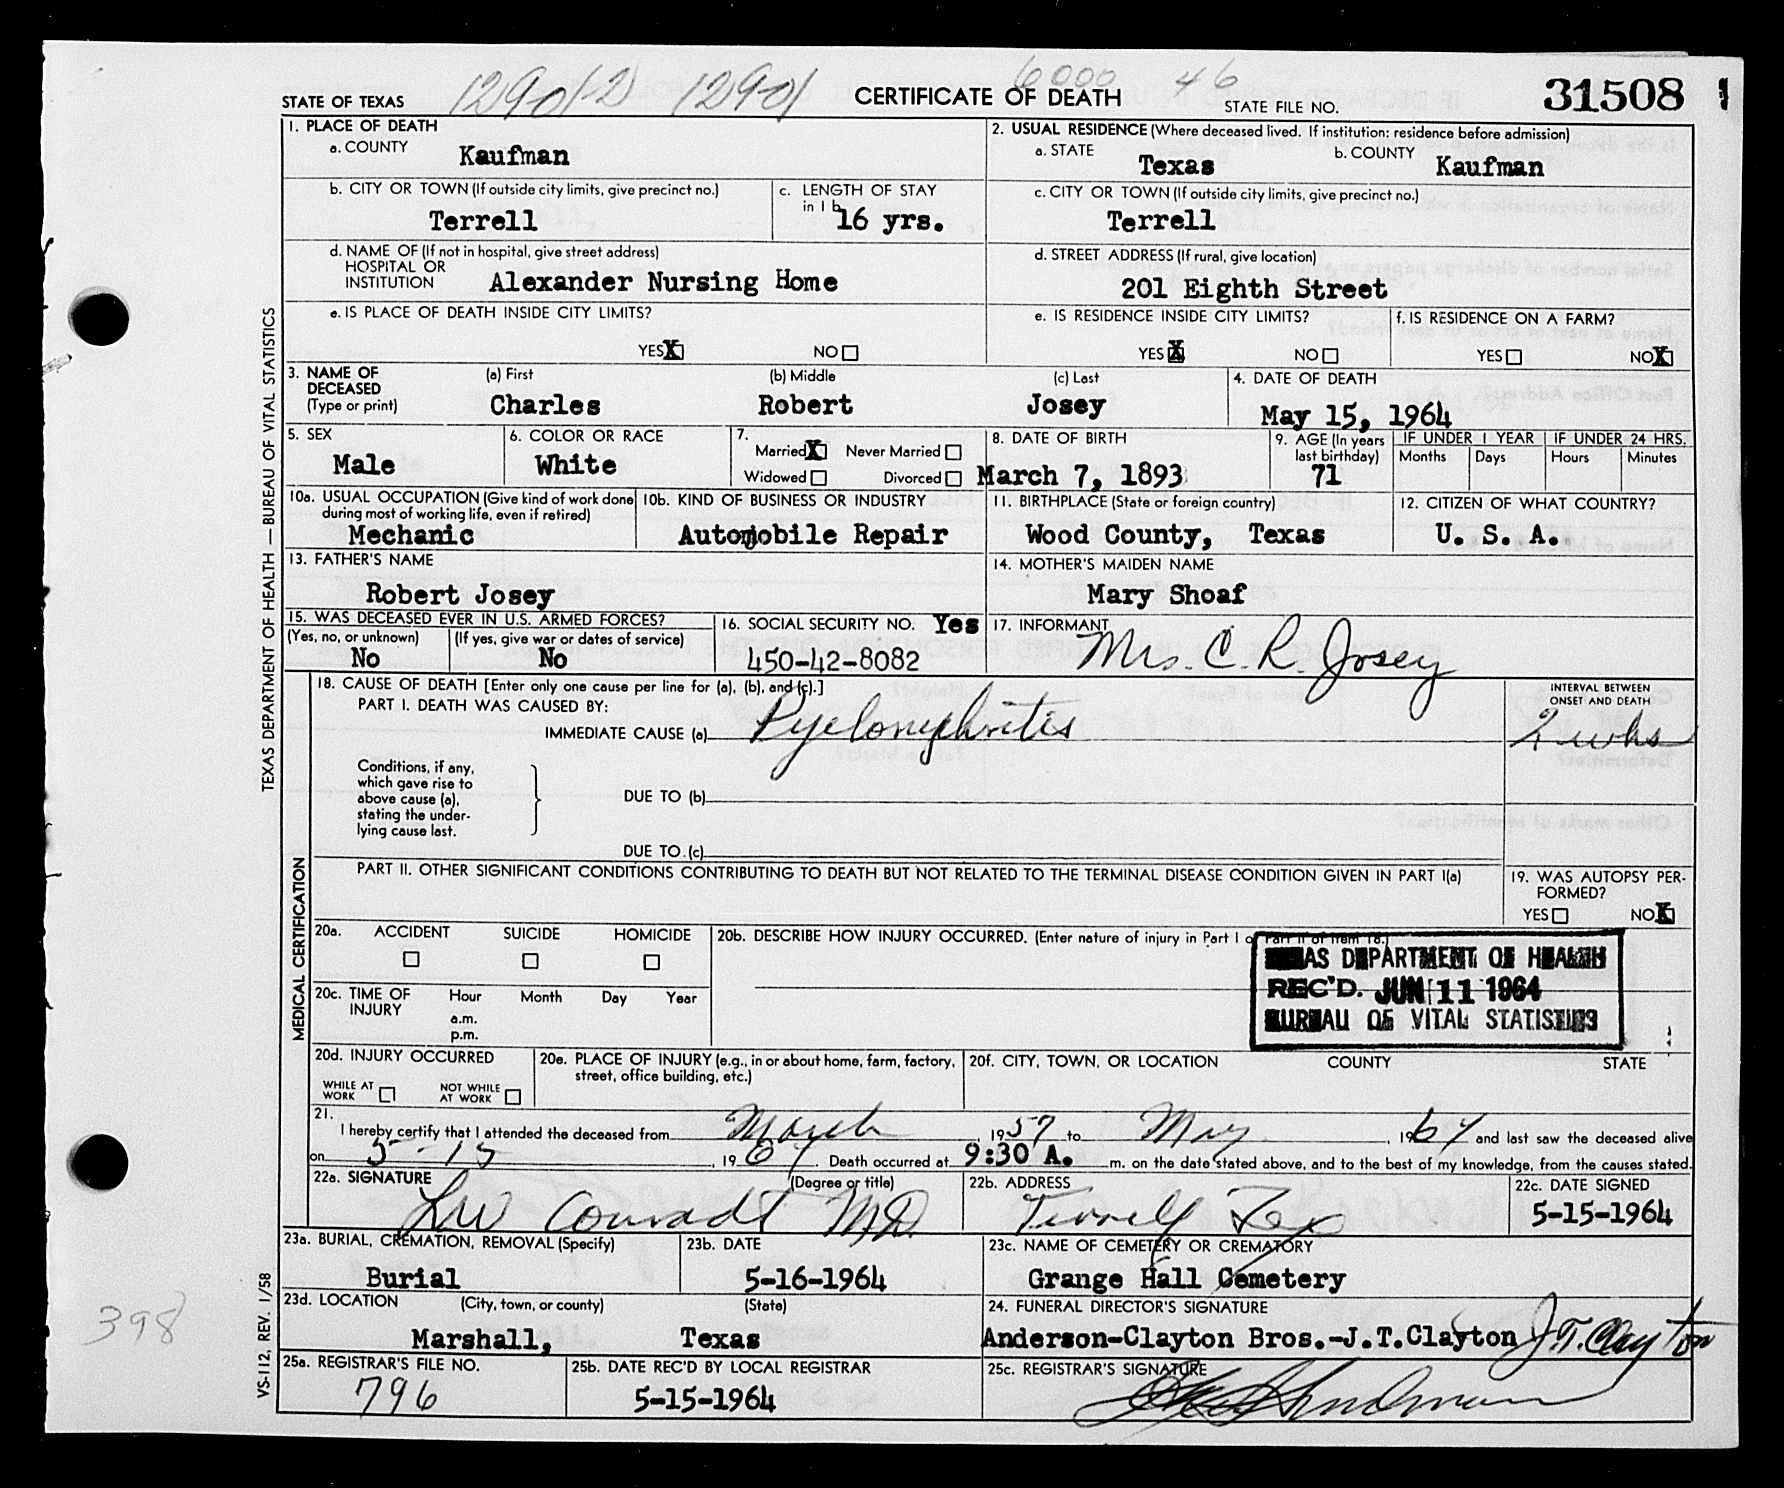 12901-2 12901 6000 46
STATE OF TEXAS CERTIFICATE OF DEATH STATE FILE NO. 31508
1. PLACE OF DEATH
a. COUNTY Kaufman
2. USUAL RESIDENCE (Where deceased lived. If institution: residence before admission)
a. STATE Texas b. COUNTY Kaufman
b. CITY OR TOWN (If outside city limits, give precinct no.) Terrell
c. LENGTH OF STAY in 1 b 16 yrs.
c. CITY OR TOWN (If outside city limits, give precinct no.) Terrell
d. NAME OF (If not in hospital, give street address)
HOSPITAL OR
INSTITUTION Alexander Nursing Home
d. STREET ADDRESS (If rural, give location)
201 Eighth Street
e. IS PLACE OF DEATH INSIDE CITY LIMITS?
YES X NO
e. IS RESIDENCE INSIDE CITY LIMITS?
YES X NO
f. IS RESIDENCE ON A FARM?
YES NO X
3. NAME OF DECEASED (Type or print)
(a) First Charles (b) Middle Robert (c) Last Josey
4. DATE OF DEATH May 15, 1964
5. SEX Male
6. COLOR OR RACE White
7. Married X Never Married
Widowed Divorced
8. DATE OF BIRTH March 7, 1893
9. AGE (In years last birthday) 71
IF UNDER 1 YEAR Months Days
IF UNDER 24 HRS. Hours Minutes
10a. USUAL OCCUPATION (Give kind of work done during most of working life, even if retired)
Mechanic
10b. KIND OF BUSINESS OR INDUSTRY
Automobile Repair
11. BIRTHPLACE (State or foreign country)
Wood County, Texas
12. CITIZEN OF WHAT COUNTRY?
U. S. A.
13. FATHER'S NAME
Robert Josey
14. MOTHER'S MAIDEN NAME
Mary Shoaf
15. WAS DECEASED EVER IN U.S. ARMED FORCES?
(Yes, no, or unknown) No (If yes, give war or dates of service) No
16. SOCIAL SECURITY NO. Yes
450-42-8082
17. INFORMANT
Mrs. C. R. Josey
18. CAUSE OF DEATH [Enter only one cause per line for (a), (b), and (c).]
PART I. DEATH WAS CAUSED BY:
IMMEDIATE CAUSE (a) Pyelonephritis
INTERVAL BETWEEN ONSET AND DEATH
2 wks
Conditions, if any,
which gave rise to
above cause (a),
stating the under-
lying cause last.
DUE TO (b)
DUE TO (c)
PART II. OTHER SIGNIFICANT CONDITIONS CONTRIBUTING TO DEATH BUT NOT RELATED TO THE TERMINAL DISEASE CONDITION GIVEN IN PART I(a)
19. WAS AUTOPSY PER-
FORMED?
YES NO X
20a. ACCIDENT SUICIDE HOMICIDE
20b. DESCRIBE HOW INJURY OCCURRED. (Enter nature of injury in Part I or Part II of item 18.)
TEXAS DEPARTMENT OF HEALTH
REC'D. JUN 11 1964
BUREAU OF VITAL STATISTICS
20c. TIME OF INJURY Hour Month Day Year
a.m.
p.m.
20d. INJURY OCCURRED
WHILE AT WORK NOT WHILE AT WORK
20e. PLACE OF INJURY (e.g., in or about home, farm, factory, street, office building, etc.)
20f. CITY, TOWN, OR LOCATION COUNTY STATE
21. I hereby certify that I attended the deceased from March, 1957 to May, 1964 and last saw the deceased alive
on 5-15, 1964. Death occurred at 9:30 A. m. on the date stated above, and to the best of my knowledge, from the causes stated.
22a. SIGNATURE (Degree or title)
LW Conradt MD
22b. ADDRESS
Terrell Tex
22c. DATE SIGNED
5-15-1964
23a. BURIAL, CREMATION, REMOVAL (Specify)
Burial
23b. DATE
5-16-1964
23c. NAME OF CEMETERY OR CREMATORY
Grange Hall Cemetery
23d. LOCATION (City, town, or county) (State)
Marshall, Texas
24. FUNERAL DIRECTOR'S SIGNATURE
Anderson-Clayton Bros.-J.T.Clayton J.T. Clayton
25a. REGISTRAR'S FILE NO.
796
25b. DATE REC'D BY LOCAL REGISTRAR
5-15-1964
25c. REGISTRAR'S SIGNATURE
TEXAS DEPARTMENT OF HEALTH — BUREAU OF VITAL STATISTICS
MEDICAL CERTIFICATION
VS-112, REV. 1/58
398